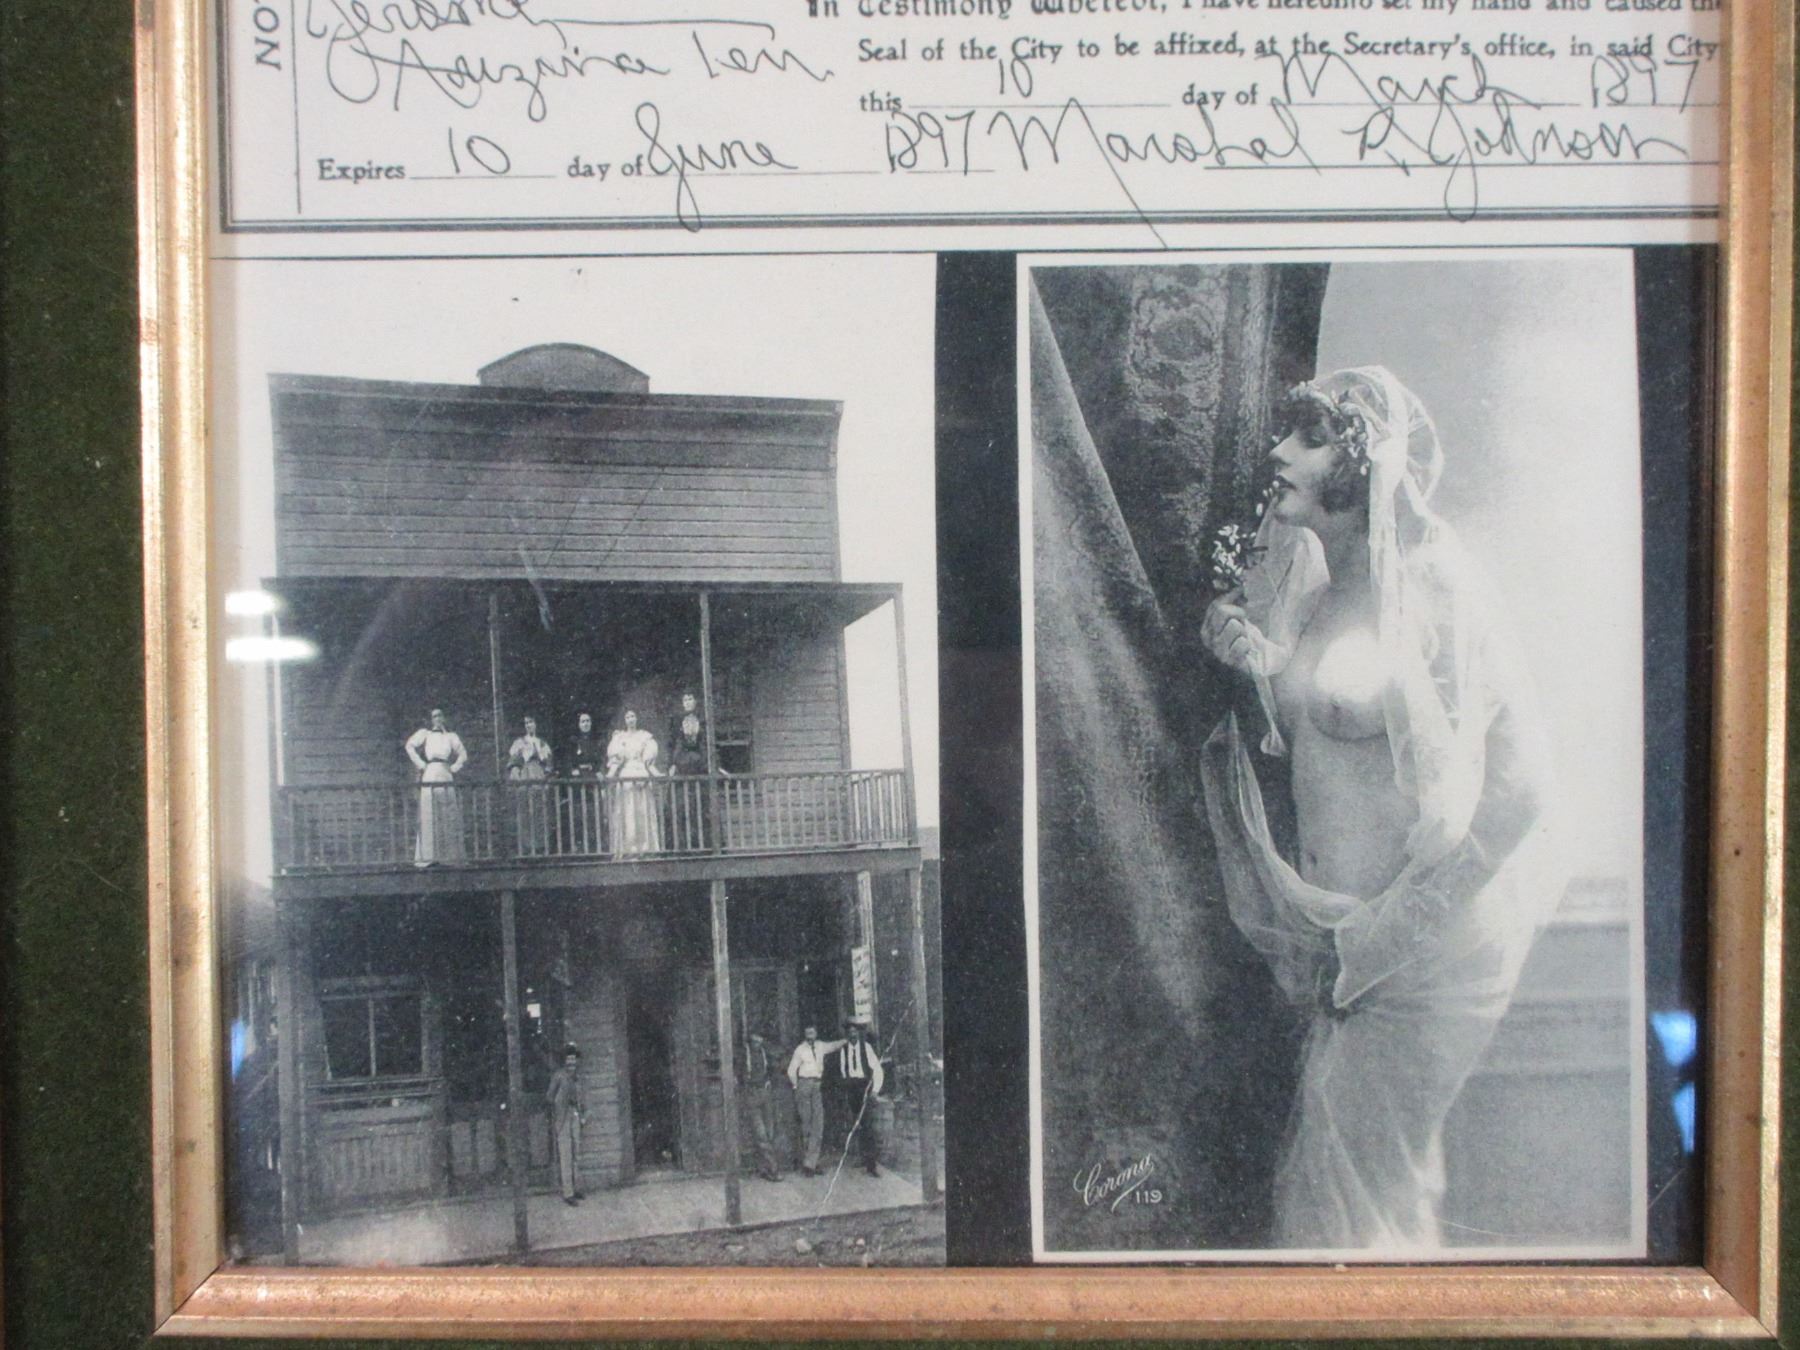 NO
Jerome,
In Testimony Whereof, I have hereunto set my hand and caused the
Arizona Terr.
Seal of the City to be affixed, at the Secretary's office, in said City
this 10 day of March 1897
Expires 10 day of June 1897 Marshal R. Johnson
Corona
119